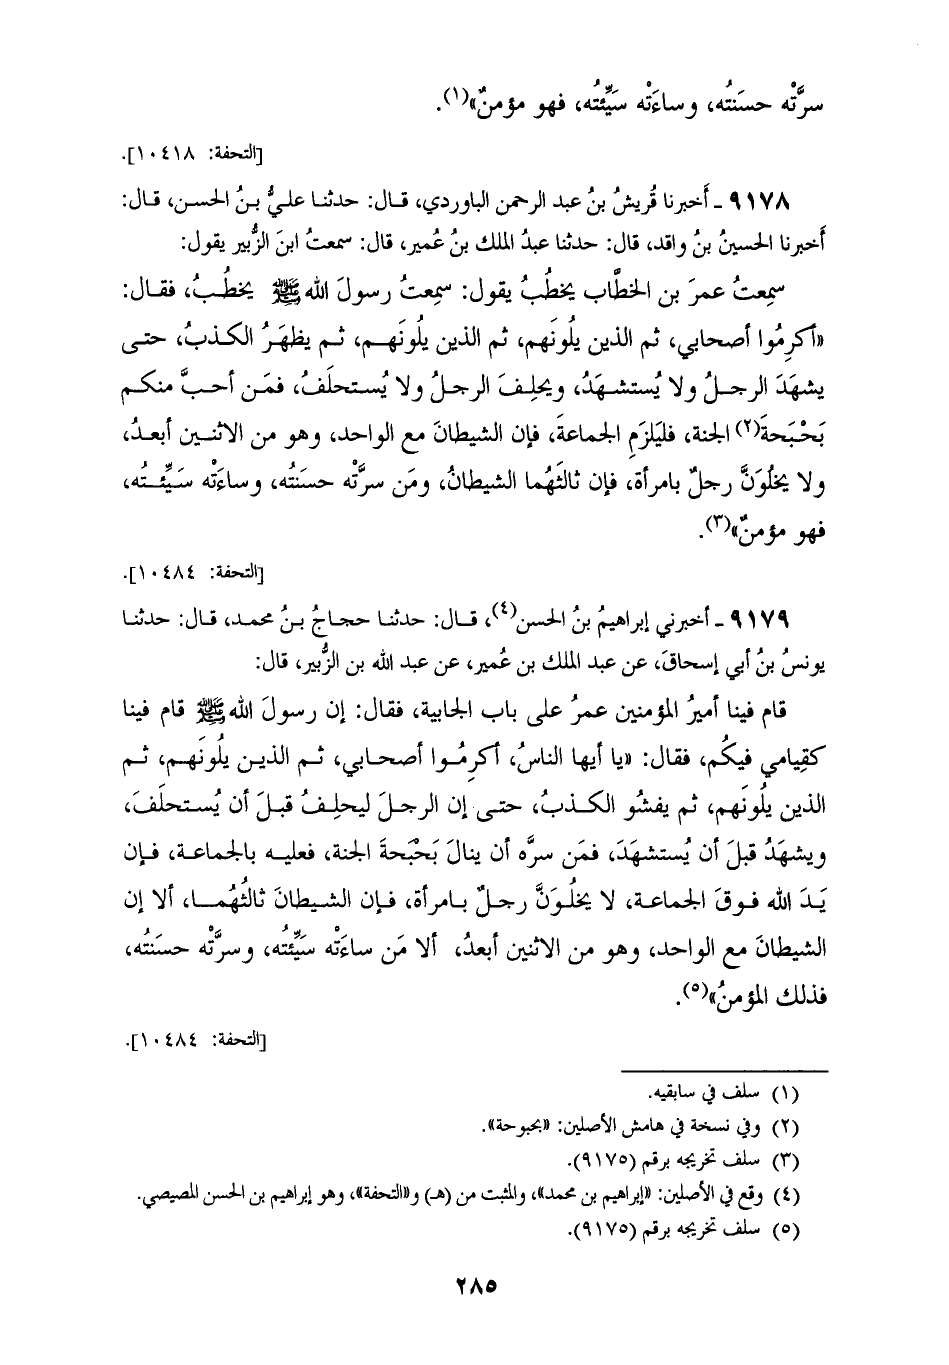 سرَّتْه حسَنتُه، وساءَتْه سَيِّئتُه، فهو مؤمنٌ»(١).
[التحفة: ١٠٤١٨].
٩١٧٨ ـ أَخبرنا قُريشُ بنُ عبد الرحمن الباوردي، قال: حدثنا عليُّ بنُ الحسن، قال:
أَخبرنا الحسينُ بنُ واقد، قال: حدثنا عبدُ الملك بنُ عُمير، قال: سمعتُ ابنَ الزُّبير يقول:
سمِعتُ عمرَ بن الخطَّاب يخطُبُ يقول: سمِعتُ رسولَ الله ﷺ يخطُبُ، فقال:
«أكرِمُوا أصحابي، ثم الذين يلُونَهم، ثم الذين يلُونَهم، ثم يظهَرُ الكذبُ، حتى
يشهَدَ الرجلُ ولا يُستشهَدُ، ويحلِفَ الرجلُ ولا يُستحلَفُ، فمَن أحبَّ منكم
بَحْبَحةَ(٢) الجنة، فليَلزَمِ الجماعةَ، فإن الشيطانَ مع الواحد، وهو من الاثنين أبعدُ،
ولا يخلُوَنَّ رجلٌ بامرأة، فإن ثالثَهُما الشيطانُ، ومَن سرَّتْه حسَنتُه، وساءَتْه سَيِّئتُه،
فهو مؤمنٌ»(٣).
[التحفة: ١٠٤٨٤].
٩١٧٩ ـ أخبرني إبراهيمُ بنُ الحسن(٤)، قال: حدثنا حجاجُ بنُ محمد، قال: حدثنا
يونسُ بنُ أبي إسحاقَ، عن عبد الملك بن عُمير، عن عبد الله بن الزُّبير، قال:
قام فينا أميرُ المؤمنين عمرُ على باب الجابية، فقال: إن رسولَ الله ﷺ قام فينا
كقِيامي فيكُم، فقال: «يا أيها الناسُ، أكرِمُوا أصحابي، ثم الذين يلُونَهم، ثم
الذين يلُونَهم، ثم يفشُو الكذبُ، حتى إن الرجلَ ليحلِفُ قبلَ أن يُستحلَفَ،
ويشهَدُ قبلَ أن يُستشهَدَ، فمَن سرَّه أن ينالَ بَحْبَحةَ الجنة، فعليه بالجماعة، فإن
يَدَ الله فوقَ الجماعة، لا يخلُوَنَّ رجلٌ بامرأة، فإن الشيطانَ ثالثُهُما، ألا إن
الشيطانَ مع الواحد، وهو من الاثنين أبعدُ، ألا مَن ساءَتْه سَيِّئتُه، وسرَّتْه حسَنتُه،
فذلك المؤمنُ»(٥).
[التحفة: ١٠٤٨٤].
(١) سلف في سابقيه.
(٢) وفي نسخة في هامش الأصلين: «بحبوحة».
(٣) سلف تخريجه برقم (٩١٧٥).
(٤) وقع في الأصلين: «إبراهيم بن محمد»، والمثبت من (هـ) و«التحفة»، وهو إبراهيم بن الحسن المصيصي.
(٥) سلف تخريجه برقم (٩١٧٥).
٢٨٥